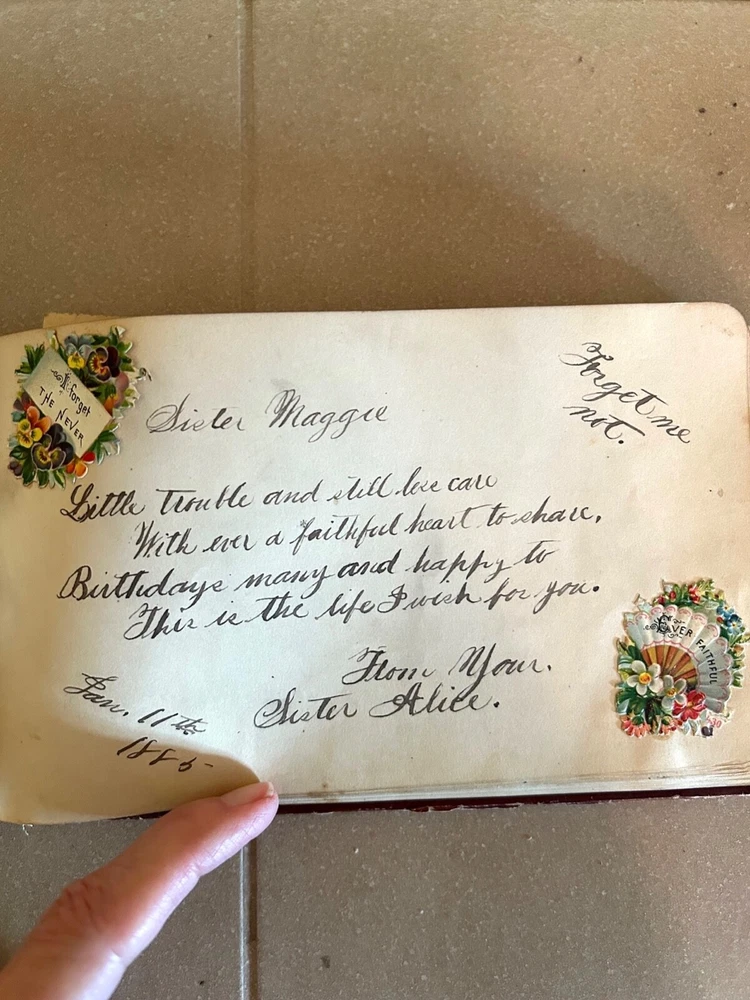 I forget
THE NEVER
Forget me
not.
Sister Maggie
Little trouble and still less care
With ever a faithful heart to share,
Birthdays many and happy to
This is the life I wish for you.
From Your.
Sister Alice.
Jan. 11th
1885
EVER FAITHFUL